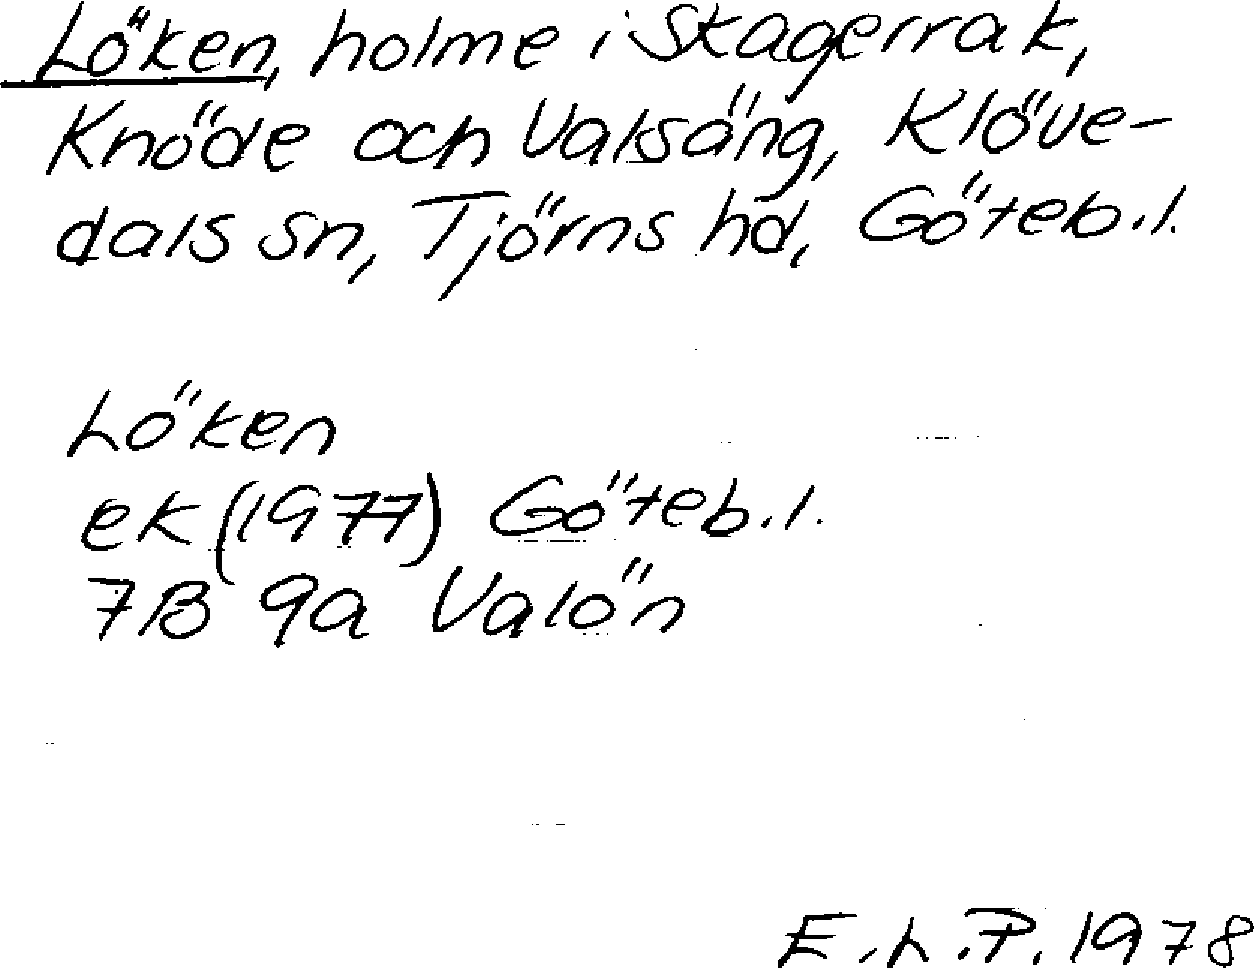 Löken, holme i Skagerrak,
Knöde och Valsäng, Klöve-
dals sn, Tjörns hd, Göteb.l.
Löken
ek (1977) Göteb.l.
7B 9a Valön
E.L.P. 1978